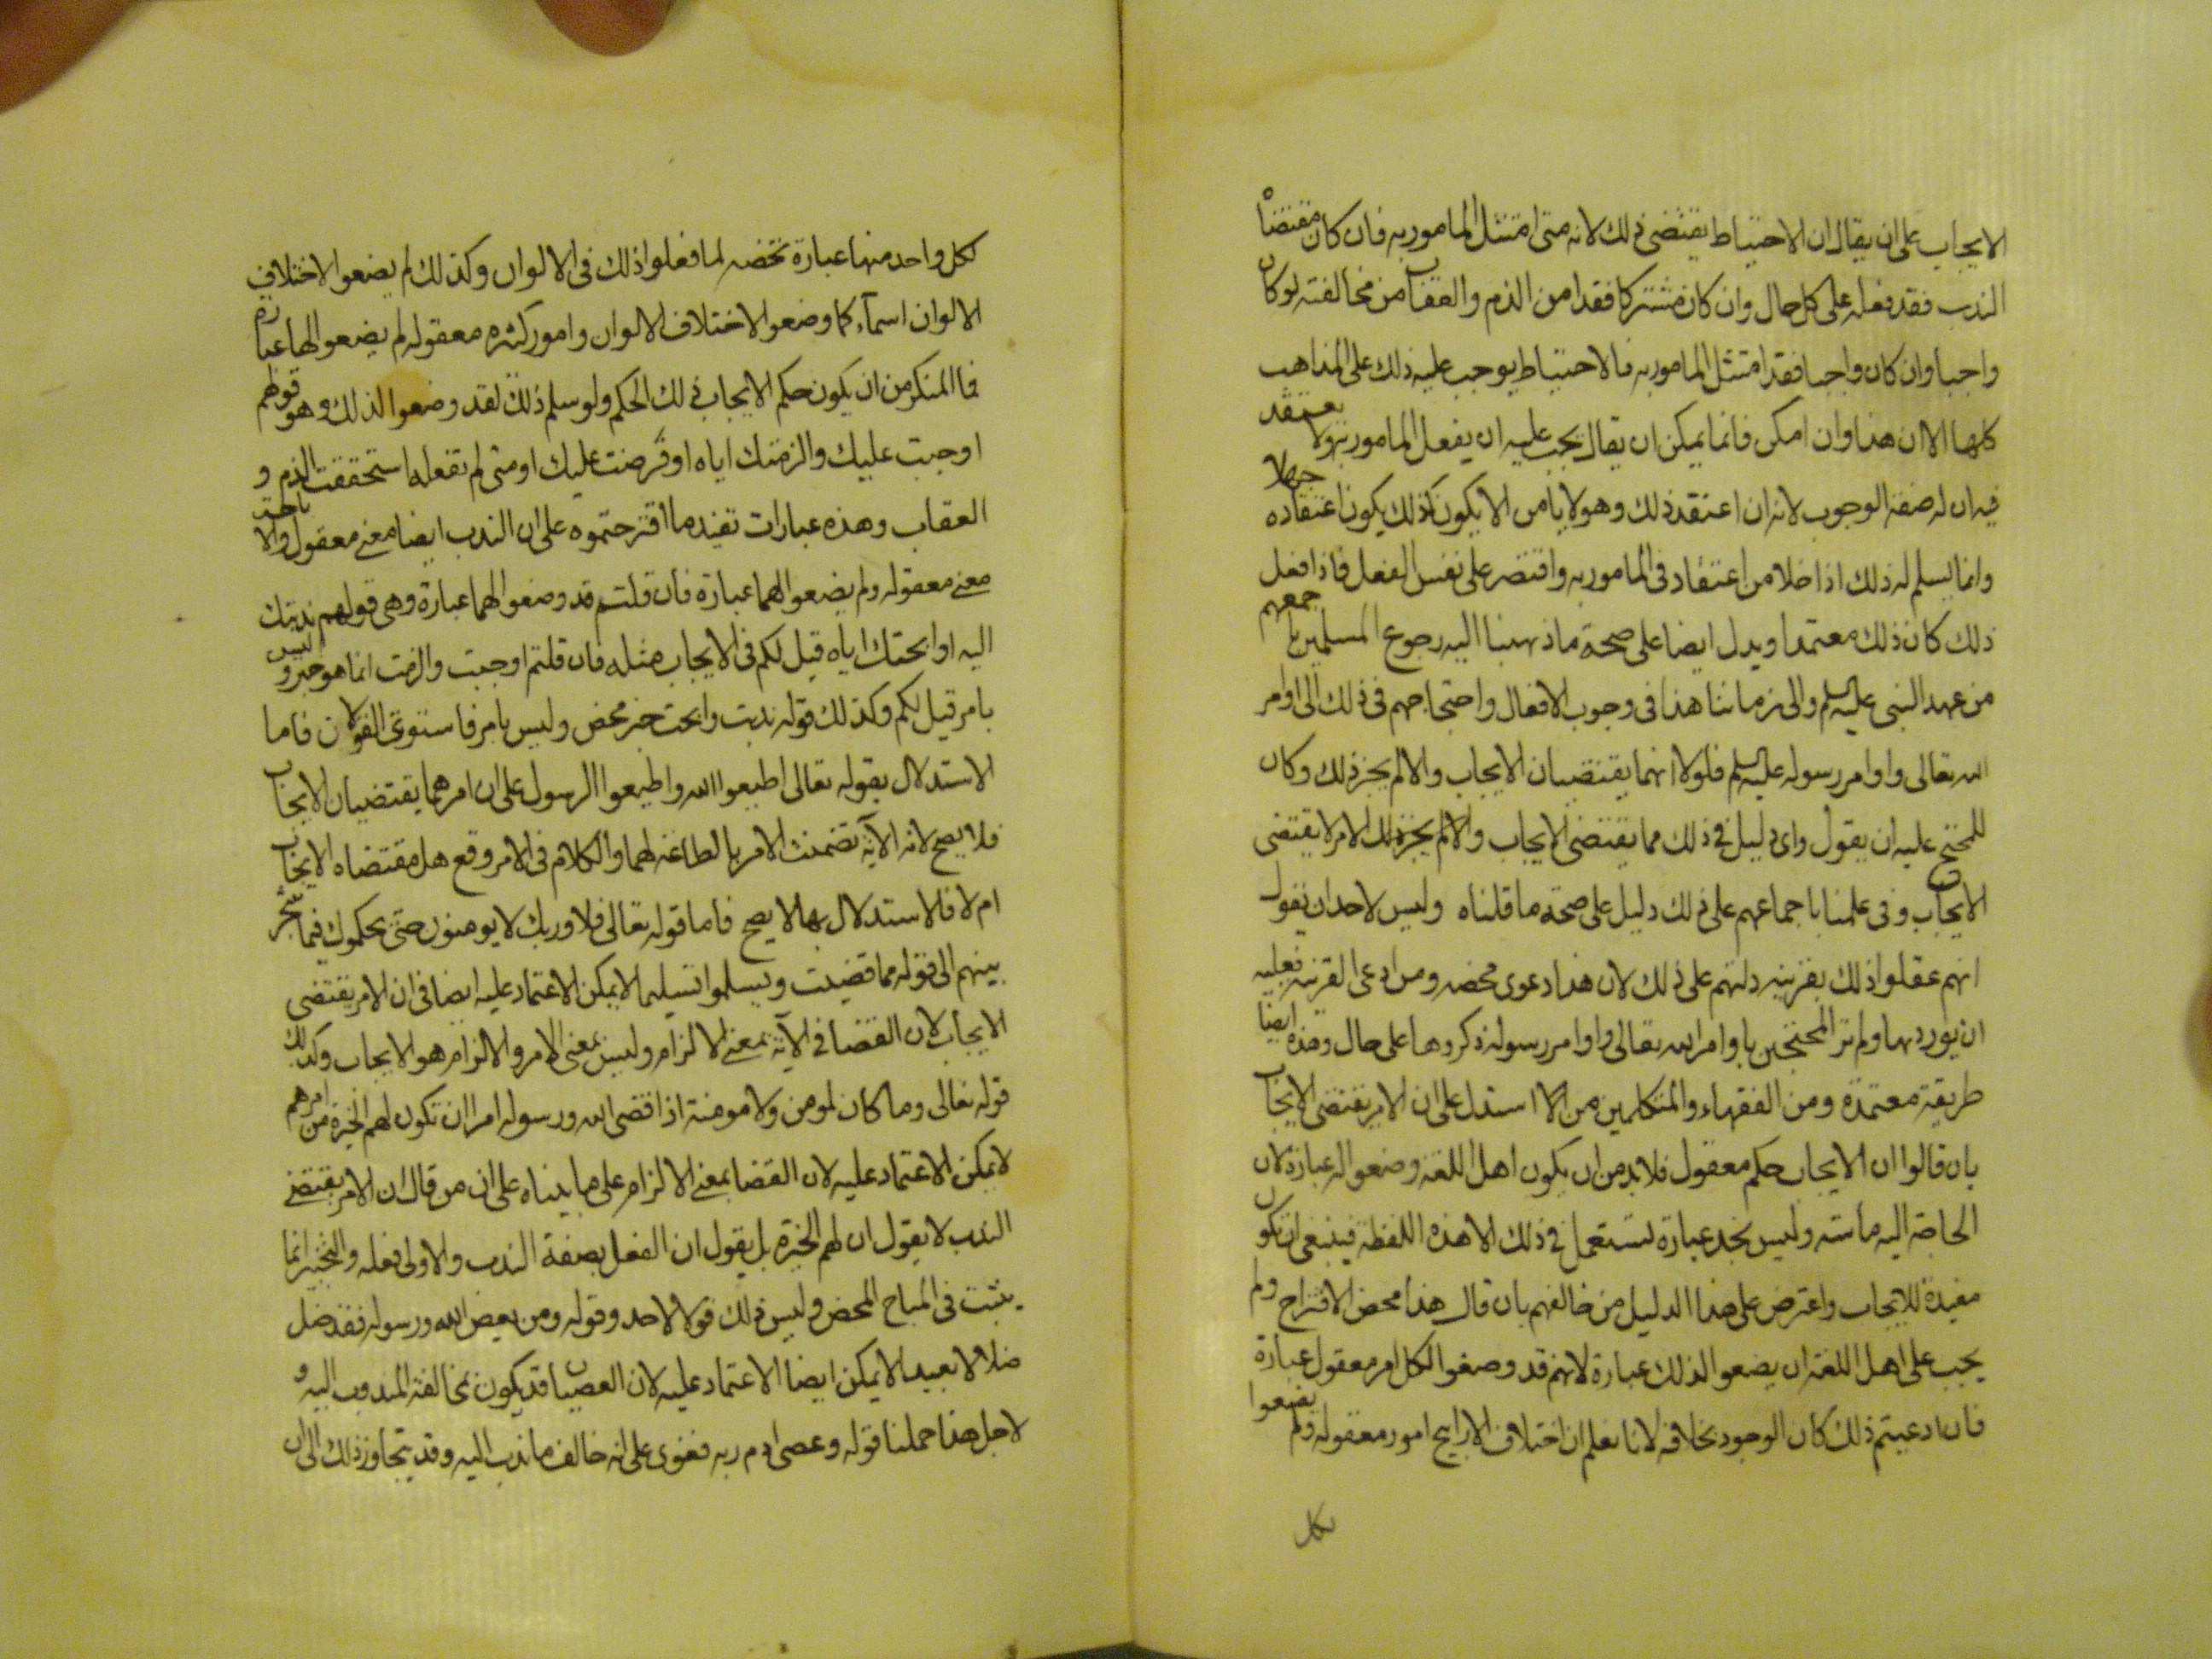 الايجاب على ان يقال ان الاحتياط يقتضى ذلك لانه متى امتثل المامور به فان كان مقتضاه
الندب فقد فعله على كل حال وان كان مشتركا فقد امن الذم والعقاب من مخالفته لو كان
واجبا وان كان واجبا فقد امتثل المامور به فالاحتياط يوجب عليه ذلك على المذاهب
كلها الا ان هذا وان امكن فانما يمكن ان يقال يجب عليه ان يفعل المامور به ولا يعتقد
فيه ان له صفة الوجوب لانه ان اعتقد ذلك وهو لا يامن الا يكون كذلك يكون اعتقاده جهلا
وانما يسلم له ذلك اذا خلا من اعتقاد فى المامور به واقتصر على نفس الفعل فاذا فعل
ذلك كان ذلك معتمدا ويدل ايضا على صحة ما ذهبنا اليه رجوع المسلمين باجمعهم
من عهد النبى عليه السلم والى زماننا هذا فى وجوب الافعال واحتجاجهم فى ذلك الى اوامر
الله تعالى واوامر رسوله عليه السلم فلولا انهما يقتضيان الايجاب والا لم يجز ذلك وكان
للمحتج عليه ان يقول واى دليل فى ذلك مما يقتضى الايجاب والا لم يجز ذلك الامر لا يقتضى
الايجاب وفى علمنا باجماعهم على ذلك دليل على صحة ما قلناه وليس لاحد ان يقول
انهم عقلوا ذلك بقرينه دلتهم على ذلك لان هذا دعوى محضه ومن ادعى القرينه فعليه
ان يوردها ولم تر المحتجين باوامر الله تعالى واوامر رسوله ذكروها على حال وهذه ايضا
طريقة معتمدة ومن الفقهاء والمتكلمين من استدل على ان الامر يقتضى الايجاب
بان قالوا ان الايجاب حكم معقول فلا بد من ان يكون اهل اللغة وضعوا له عبارة لان
الحاجة اليه ماسة وليس نجد عبارة تستعمل فى ذلك الا هذه اللفظة فينبغى ان تكون
مفيدة للايجاب واعترض على هذا الدليل من خالفهم بان قال هذا محض الاقتراح ولم
يجب على اهل اللغة ان يضعوا لذلك عبارة لانهم قد وضعوا لكل امر معقول عبارة
فان ادعيتم ذلك كان الوجود بخلافه لانا نعلم ان اختلاف الاراييح امور معقوله ولم يضعوا
لكل
لكل واحد منها عبارة تخصه لما فعلوا ذلك فى الالوان وكذلك لم يضعوا لاختلاف
الالوان اسمآء كما وضعوا لاختلاف الالوان وامور كثيره معقوله لم يضعوا لها عبارة
فما المنكر من ان يكون حكم الايجاب ذلك الحكم ولو سلم ذلك لقد وضعوا لذلك وهو قولهم
اوجبت عليك والزمتك اياه او فرضت عليك او متى لم تفعله استحققت الذم و
العقاب وهذه عبارات تفيد ما اقترحتموه على ان الندب ايضا معنى معقول والاباحة
معنى معقوله ولم يضعوا لهما عبارة فان قلتم قد وضعوا لهما عبارة وهى قولهم ندبتك
اليه او ابحتك اياه قيل لكم فى الايجاب مثله فان قلتم اوجبت والزمت انما هو خبر وليس
بامر قيل لكم وكذلك قوله ندبت وابحت خبر محض وليس بامر فاستوى القولان فاما
الاستدلال بقوله تعالى اطيعوا الله واطيعوا الرسول على ان امرهما يقتضيان الايجاب
فلا يصح لانه الآية تضمنت الامر بالطاعة لهما والكلام فى الامر وقع هل مقتضاه الايجاب
ام لا فالاستدلال بها لا يصح فاما قوله تعالى فلا وربك لا يومنون حتى يحكموك فيما شجر
بينهم الى قوله مما قضيت ويسلموا تسليما لا يمكن الاعتماد عليه ايضا فى ان الامر يقتضى
الايجاب لان القضا فى الآية بمعنى الالزام وليس بمعنى الامر والالزام هو الايجاب وكذلك
قوله تعالى وما كان لمومن ولا مومنة اذا قضى الله ورسوله امرا ان تكون لهم الخيرة من امرهم
لا يمكن الاعتماد عليه لان القضا بمعنى الالزام على ما بيناه على ان من قال ان الامر يقتضى
الندب لا يقول ان لهم الخيرة بل يقول ان الفعل بصفة الندب والاولى فعله والتخيير انما
يثبت فى المباح المحض وليس ذلك قولا لاحد وقوله ومن يعص الله ورسوله فقد ضل
ضلالا بعيدا لا يمكن ايضا الاعتماد عليه لان العصيان قد يكون بمخالفة المندوب اليه و
لاجل هذا حملنا قوله وعصى ادم ربه فغوى على انه خالف ما ندب اليه وقد يتجاوز ذلك الى ان